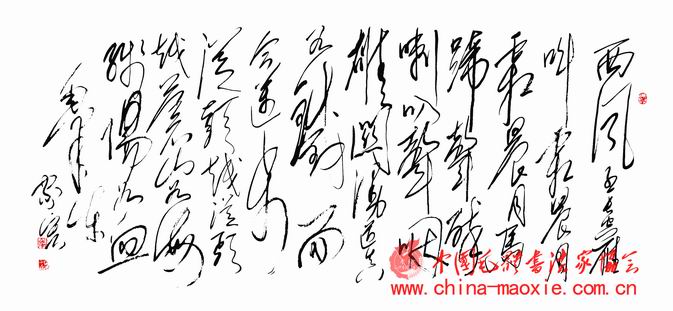 西风烈长空雁
叫霜晨月
霜晨月马
蹄聲碎
喇叭聲咽
雄関漫道真
如鐵而
今迈步
從頭越從頭
越蒼山如海
残陽如血
中国毛体书法家协会
www.china-maoxie.com.cn